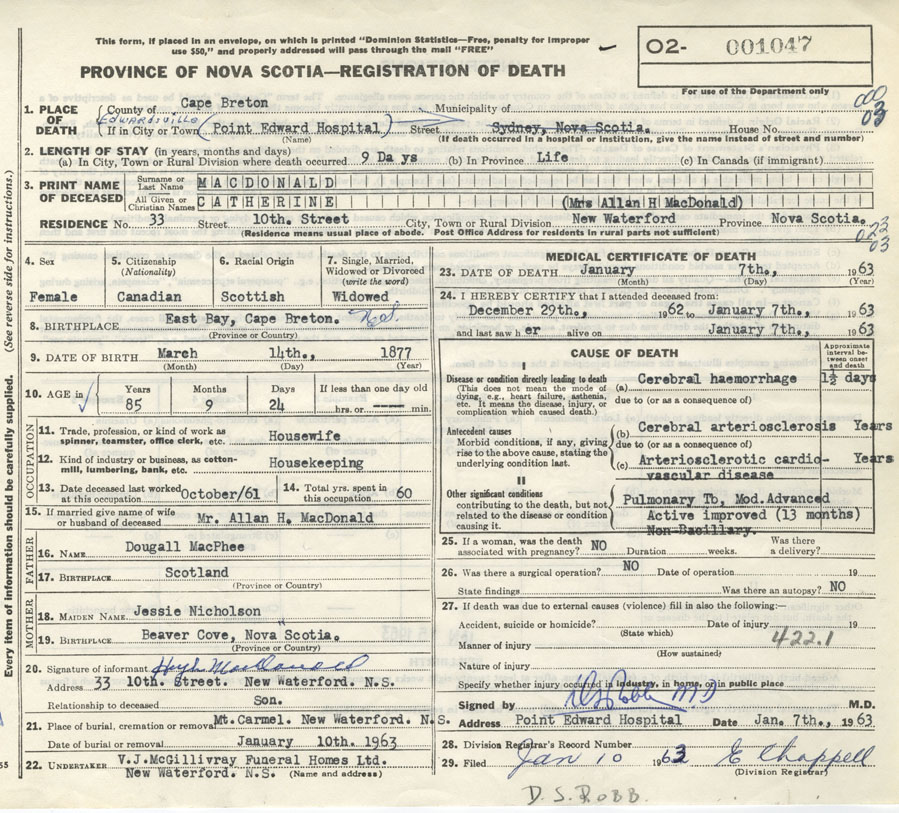 This form, if placed in an envelope, on which is printed "Dominion Statistics—Free, penalty for improper
use $50," and properly addressed will pass through the mail "FREE"
O2- 001047
PROVINCE OF NOVA SCOTIA—REGISTRATION OF DEATH
For use of the Department only
1. PLACE OF DEATH County of Cape Breton Municipality of
Edwardsville
If in City or Town (Point Edward Hospital) Street Sydney, Nova Scotia. House No.
(Name) (If death occurred in a hospital or institution, give the name instead of street and number)
03
2. LENGTH OF STAY (in years, months and days)
(a) In City, Town or Rural Division where death occurred 9 Days (b) In Province Life (c) In Canada (if immigrant)
3. PRINT NAME OF DECEASED
Surname or Last Name MACDONALD
All Given or Christian Names CATHERINE (Mrs Allan H MacDonald)
RESIDENCE No. 33 Street 10th. Street City, Town or Rural Division New Waterford Province Nova Scotia.
(Residence means usual place of abode. Post Office Address for residents in rural parts not sufficient)
03
(See reverse side for instructions.)
Every item of information should be carefully supplied.
4. Sex Female
5. Citizenship (Nationality) Canadian
6. Racial Origin Scottish
7. Single, Married, Widowed or Divorced (write the word) Widowed
8. BIRTHPLACE East Bay, Cape Breton. N.S.
(Province or Country)
9. DATE OF BIRTH March 14th., 1877
(Month) (Day) (Year)
10. AGE in Years 85 Months 9 Days 24 If less than one day old hrs. or min.
OCCUPATION
11. Trade, profession, or kind of work as spinner, teamster, office clerk, etc. Housewife
12. Kind of industry or business, as cotton-mill, lumbering, bank, etc. Housekeeping
13. Date deceased last worked at this occupation October/61
14. Total yrs. spent in this occupation 60
15. If married give name of wife or husband of deceased Mr. Allan H. MacDonald
FATHER
16. NAME Dougall MacPhee
17. BIRTHPLACE Scotland
(Province or Country)
MOTHER
18. MAIDEN NAME Jessie Nicholson
19. BIRTHPLACE Beaver Cove, Nova Scotia.
(Province or Country)
20. Signature of informant Hugh MacDonald
Address 33 10th. Street. New Waterford. N.S.
Relationship to deceased Son.
21. Place of burial, cremation or removal Mt.Carmel. New Waterford. N.S.
Date of burial or removal January 10th. 1963
22. UNDERTAKER V.J.McGillivray Funeral Homes Ltd.
New Waterford. N.S. (Name and address)
MEDICAL CERTIFICATE OF DEATH
23. DATE OF DEATH January 7th., 1963
(Month) (Day) (Year)
24. I HEREBY CERTIFY that I attended deceased from
December 29th., 1962 to January 7th., 1963
and last saw her alive on January 7th., 1963
CAUSE OF DEATH
Approximate interval between onset and death
I
Disease or condition directly leading to death
(This does not mean the mode of dying, e.g., heart failure, asthenia, etc. It means the disease, injury, or complication which caused death.)
(a) Cerebral haemorrhage 1½ days
due to (or as a consequence of)
Antecedent causes
Morbid conditions, if any, giving rise to the above cause, stating the underlying condition last.
(b) Cerebral arteriosclerosis Years
due to (or as a consequence of)
(c) Arteriosclerotic cardio- Years
vascular disease
II
Other significant conditions
contributing to the death, but not related to the disease or condition causing it.
Pulmonary Tb, Mod.Advanced
Active improved (13 months)
Non-Bacillary.
25. If a woman, was the death associated with pregnancy? NO Duration weeks. Was there a delivery?
26. Was there a surgical operation? NO Date of operation 19
State findings Was there an autopsy? NO
27. If death was due to external causes (violence) fill in also the following:—
Accident, suicide or homicide? Date of injury 19
(State which)
Manner of injury 422.1
(How sustained)
Nature of injury
Specify whether injury occurred in industry, in home, or in public place
Signed by DS Robb MD M.D.
Address Point Edward Hospital Date Jan. 7th., 1963
28. Division Registrar's Record Number
29. Filed Jan 10 1963 E Chappell
(Division Registrar)
D.S. ROBB.